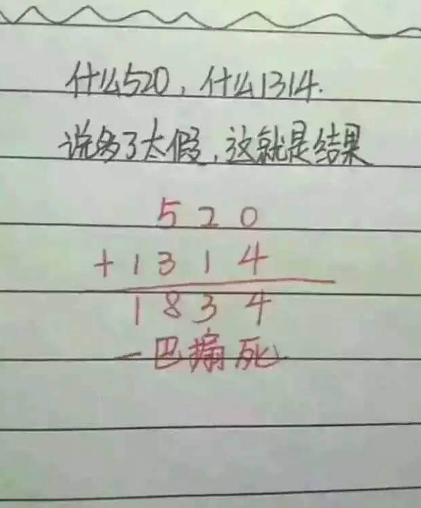 什么520，什么1314.
说多了太假，这就是结果
520
+1314
1834
一巴搧死